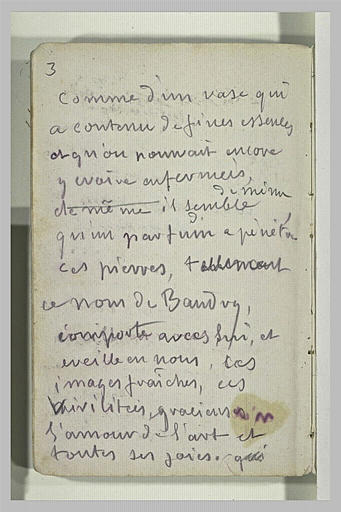 3
comme d'un vase qui
a contenu de fines essences
et qu'on pouvait encore
y croire enfermées,
de même
de même il semble
qu'un parfum a pénétré
ces pierres, tellement
ce nom de Baudry,
emporte avec lui, et
eveille en nous, ces
images fraîches, ces
gracieuses
l'amour de l'art et
toutes ses joies. qui